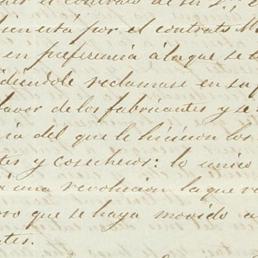 el contrato de su S.
está por el contrato M
en preferencia á la que se t
diéndole reclamase en su p
favor de los fabricantes y se
ia del que le hicieron los
tes y cosecheros: lo unico
á una revolucion la que v
oro que se haya movido a
ntes.